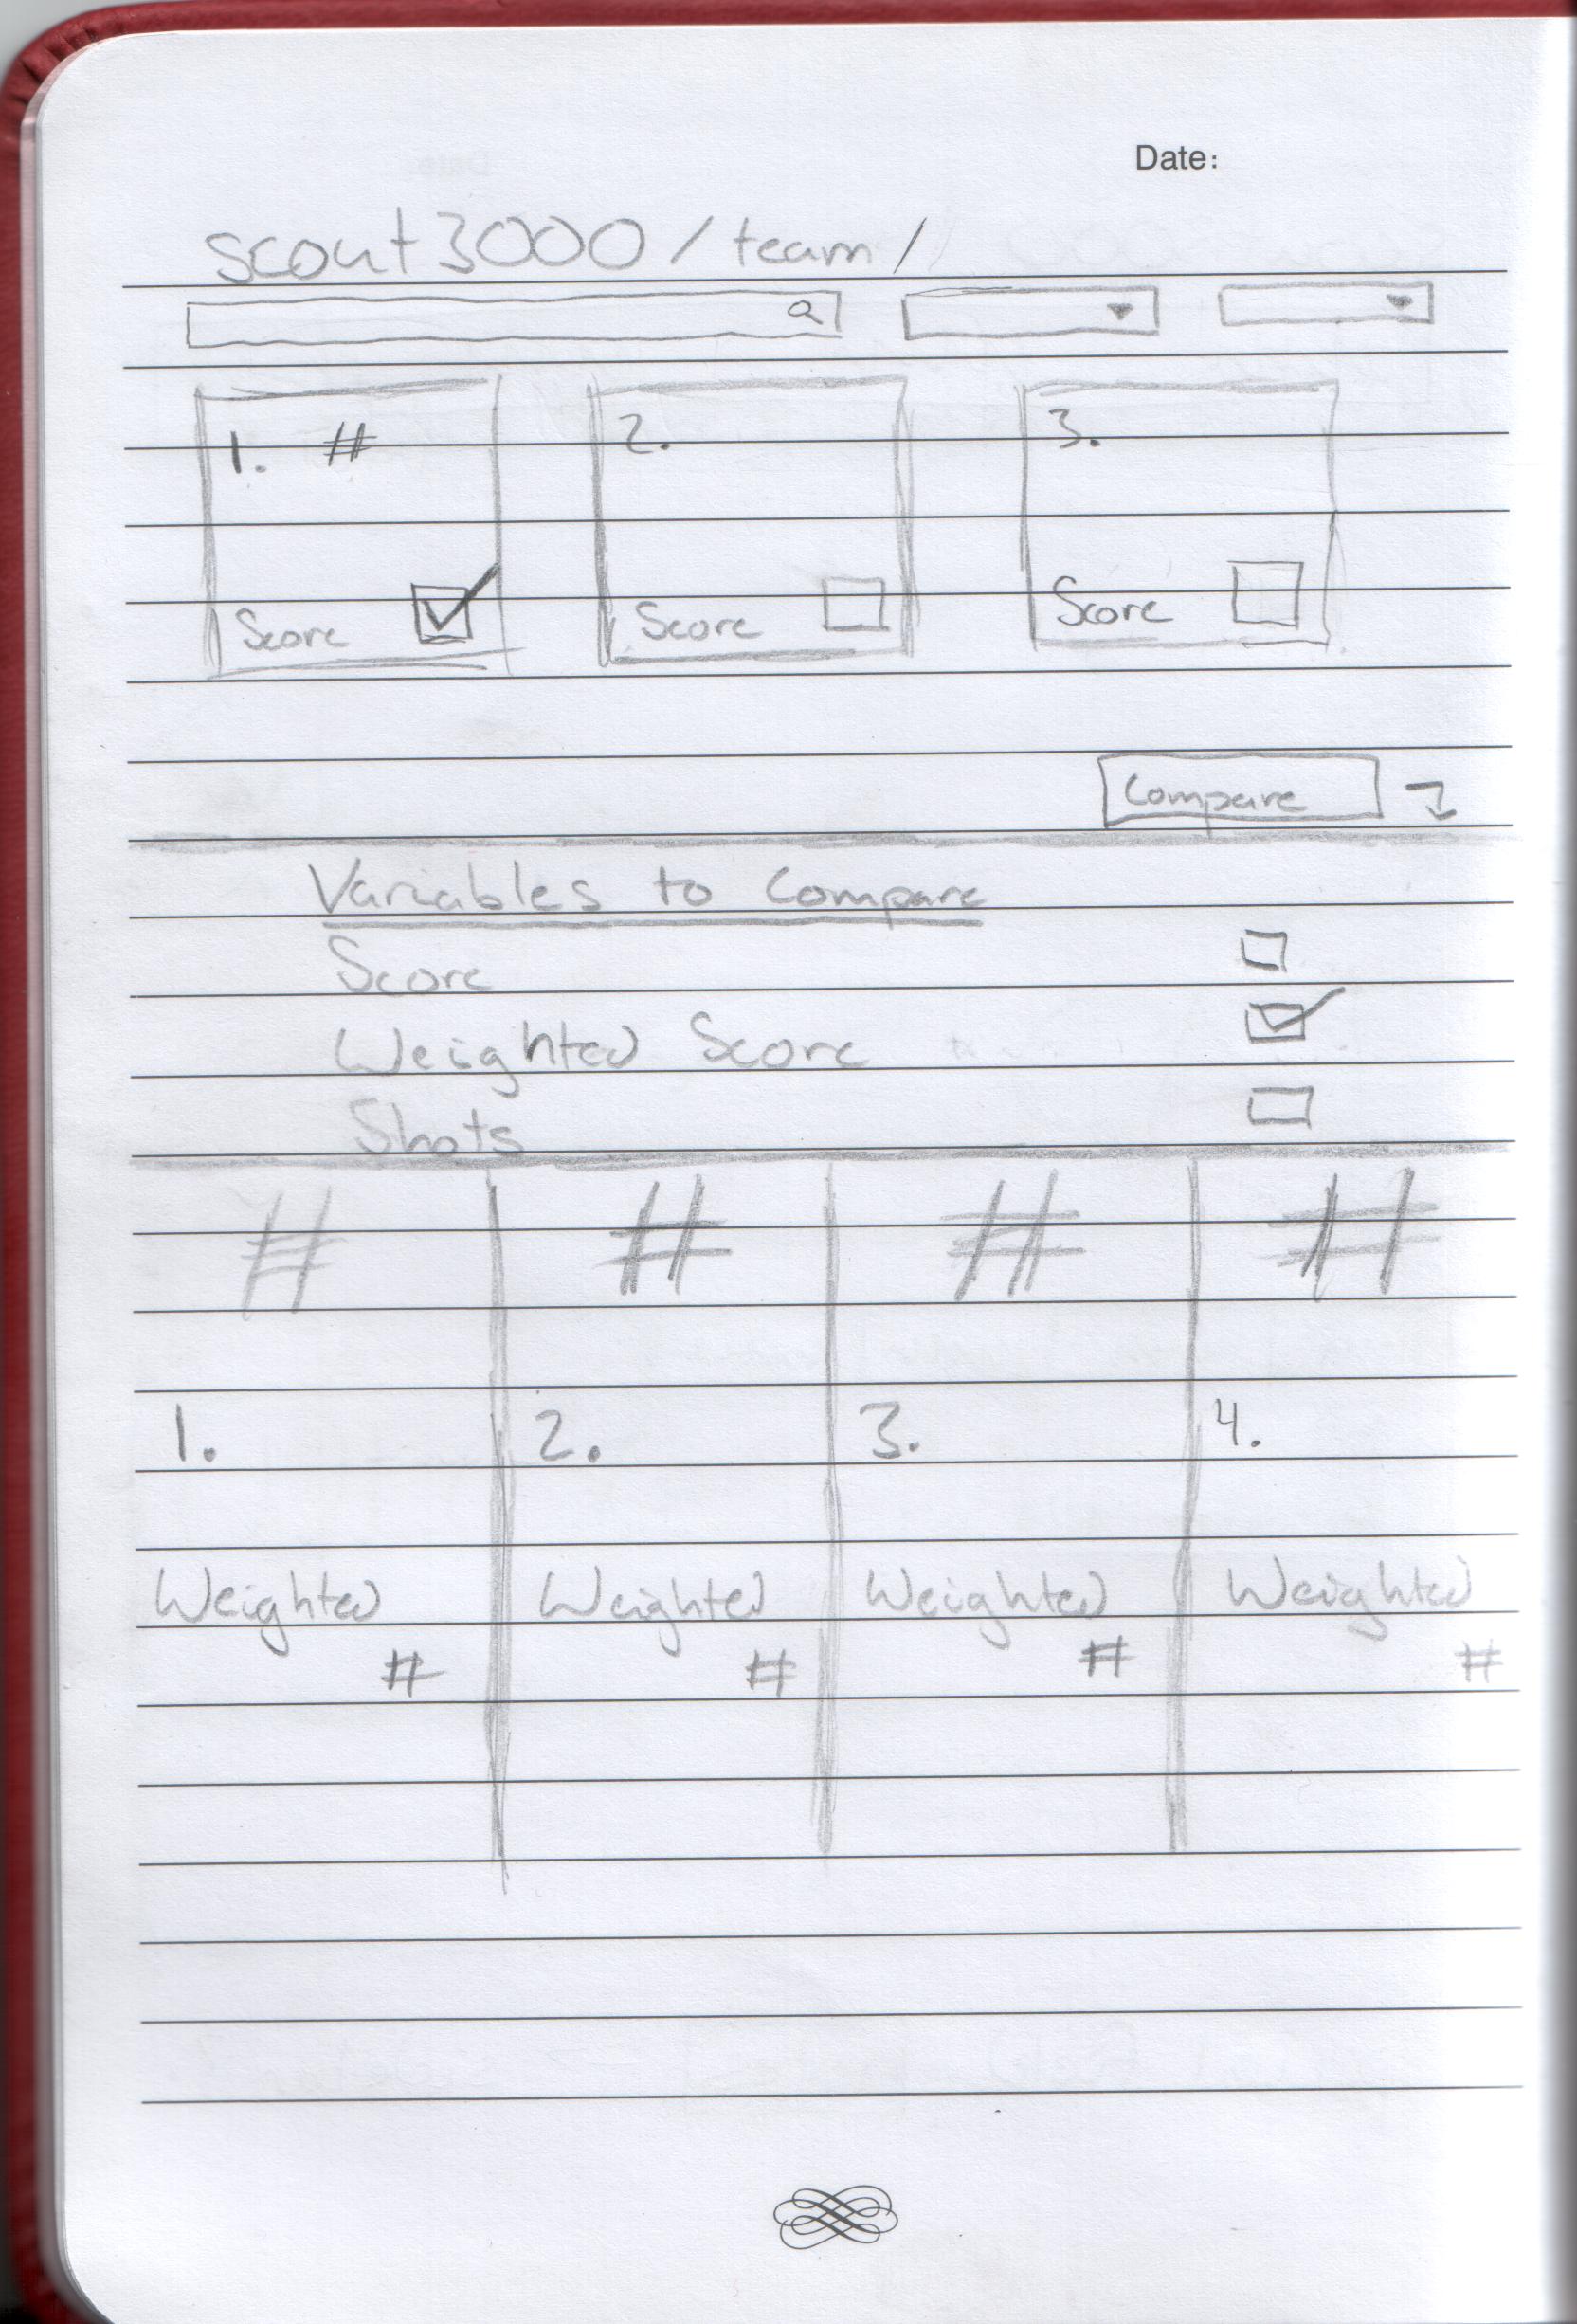 Date:
scout3000/team/
1. # 2. 3.
Score Score Score
Compare
Variables to Compare
Score
Weighted Score
Shots
# # # #
1. 2. 3. 4.
Weighted Weighted Weighted Weighted
# # # #